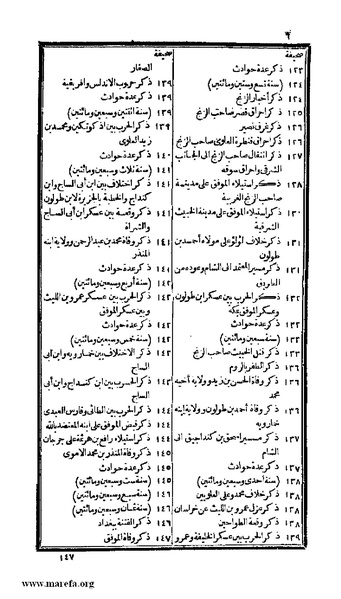 ٦
صحيفة
١٢٣ ذكر عدة حوادث
١٢٤ (سنة تسع وستين ومائتين)
١٢٤ ذكر أخبار الزنج
١٢٥ ذكر احراق قصر صاحب الزنج
١٢٦ ذكر غرق نصير
١٢٦ ذكر احراق قنطرة العلوي صاحب الزنج
١٢٧ ذكر انتقال صاحب الزنج الى الجانب
الشرقي واحراق سوقه
١٢٨ ذكر استيلاء الموفق على مدينة
صاحب الزنج الغربية
١٣٠ ذكر استيلاء الموفق على مدينة الخبيث
الشرقية
١٣١ ذكر خلاف لؤلؤ على مولاه أحمد بن
طولون
١٣١ ذكر مسير المعتمد الى الشام وعوده من
الطريق
١٣٢ ذكر الحرب بين عسكر ابن طولون
وعسكر الموفق بمكة
١٣٢ ذكر عدة حوادث
١٣٢ (سنة سبعين ومائتين)
١٣٣ ذكر قتل الخبيث صاحب الزنج
١٣٦ ذكر الظفر بالروم
١٣٦ ذكر وفاة الحسن بن زيد وولاية أخيه
محمد
١٣٦ ذكر وفاة أحمد بن طولون وولاية ابنه
خمارويه
١٣٧ ذكر مسير اسحق بن كنداجيق الى
الشام
١٣٧ ذكر عدة حوادث
١٣٨ (سنة احدى وسبعين ومائتين)
١٣٨ ذكر خلاف محمد وعلي العلويين
١٣٨ ذكر عزل عمرو بن الليث عن خراسان
١٣٨ ذكر وقعة الطواحين
١٣٩ ذكر الحرب بين عسكر الخليفة وعمرو
صحيفة
الصفار
١٣٩ ذكر حروب الاندلس وافريقية
١٣٩ ذكر عدة حوادث
١٣٩ (سنة اثنتين وسبعين ومائتين)
١٣٩ ذكر الحرب بين اذكوتكين ومحمد بن
زيد العلوي
١٤٠ ذكر عدة حوادث
١٤١ (سنة ثلاث وسبعين ومائتين)
١٤١ ذكر اختلاف بين ابن أبي الساج وابن
كنداج والخطبة بالجزيرة لابن طولون
١٤١ ذكر وقعة بين عسكر ابن أبي الساج
والشراة
١٤١ ذكر وفاة محمد بن عبد الرحمن وولاية ابنه
المنذر
١٤١ ذكر عدة حوادث
١٤٢ (سنة أربع وسبعين ومائتين)
١٤٢ ذكر الحرب بين عسكر عمرو بن الليث
وبين عسكر الموفق
١٤٢ ذكر عدة حوادث
١٤٢ (سنة خمس وسبعين ومائتين)
١٤٢ ذكر الاختلاف بين خمارويه وابن أبي
الساج
١٤٣ ذكر الحرب بين ابن كنداج وابن أبي
الساج
١٤٣ ذكر الحرب بين الطائي وفارس العبدي
١٤٣ ذكر قبض الموفق على ابنه المعتضد بالله
١٤٤ ذكر استيلاء رافع بن هرثمة على جرجان
١٤٤ ذكر وفاة المنذر بن محمد الاموي
١٤٥ ذكر عدة حوادث
١٤٥ (سنة ست وسبعين ومائتين)
١٤٦ (سنة سبع وسبعين ومائتين)
١٤٦ (سنة ثمان وسبعين ومائتين)
١٤٦ ذكر الفتنة ببغداد
١٤٧ ذكر وفاة الموفق
١٤٧
www.marefa.org